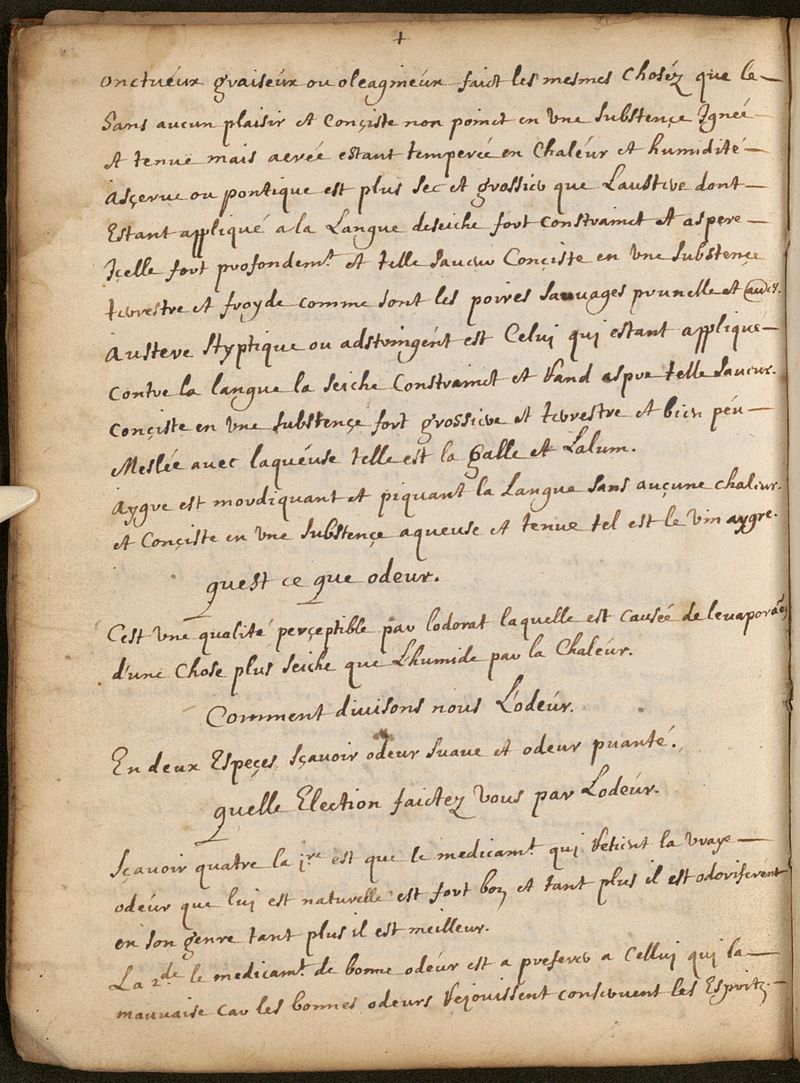 +
onctuéux graiseúx ou oleagineúx faict les mesmes choséz que le
sans aucun plaisir et conçiste non poinct en une substençe Ignée
et tenue mais aerée estant temperée en chaléur et humidité
Asçerue ou pontique est plus sec et grossier que Laustere dont
Estant appliqué a la Langue deseiche fort constrainct et aspere
Içelle fort profondemt. et telle saueur Conçiste en une substençe
terrestre et froyde comme sont les poires sauuages prunelle et
Austere styptique ou adstringént est Celui qui estant appliqué
contre la langue la seiche Constrainct et rend aspre telle saueur.
conçiste en une substençe fort grossiere et terrestre et bien péu
Meslée avec laquéuse telle est la galle et Lalum.
Aygre est mordiquant et piquant la Langue sans auçune chaleur.
et Conçiste en une substençe aqueuse et tenue tel est le vin aygre.
quest ce que odeur.
Cest une qualité perçeptible par lodorat laquelle est causée de leuapora
d'une chose plus seiche que Lhumide par la Chaléur.
Comment divisons nous L'odéur.
En deux Espeçes sçavoir odéur suaue et odeur puanté.
quelle Election faictez vous par Lodéur.
sçavoir quatre la jre est que le medicamt. qui retient la vraye
odéur que lui est naturelle est fort bon et tant plus il est odoriferént
en son genre tant plus il est meilleur.
La 2de le medicamt. de bonne odéur est a preferer a Cellui qui la
mauvaise car les bonnes odeurs réjouissent conseruent les Espritz